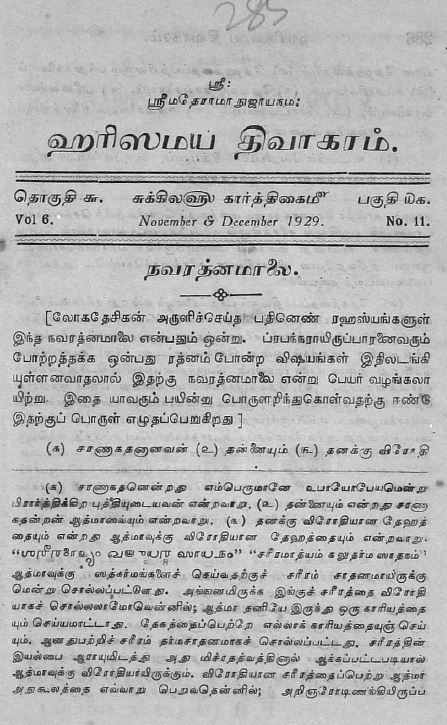 285
ஸ்ரீ:
ஸ்ரீமதேராமாநுஜாயநம:
ஹரிஸமய திவாகரம்.
தொகுதி ௬. சுக்கிலவுஸ கார்த்திகைமீ பகுதி ௰௧.
Vol 6. November & December 1929. No. 11.
நவரத்னமாலை.
[லோகதேசிகன் அருளிச்செய்த பதினெண் ரஹஸ்யங்களுள்
இந்த நவரத்னமாலை என்பதும் ஒன்று. ப்ரபந்நராயிருப்பாரனைவரும்
போற்றத்தக்க ஒன்பது ரத்னம் போன்ற விஷயங்கள் இதிலடங்கி
யுள்ளனவாதலால் இதற்கு நவரத்னமாலை என்று பெயர் வழங்கலா
யிற்று. இதை யாவரும் பயின்று பொருளறிந்துகொள்வதற்கு ஈண்டு
இதற்குப் பொருள் எழுதப்பெறுகிறது]
(௧) சரணாகதனானவன் (௨) தன்னையும் (௩) தனக்கு விரோதி
(௧) சரணாகதனென்றது எம்பெருமானே உபாயோபேயமென்று
பிரார்த்திக்கிற புத்தியுடையவன் என்றவாறு, (௨) தன்னையும் என்றது சரணா
கதன்றன் ஆத்மாவையும் என்றவாறு. (௩) தனக்கு விரோதியான தேஹத்
தையும் என்றது ஆத்மாவுக்கு விரோதியான தேஹத்தையும் என்றவாறு.
"சரீரமாத்யம் கலுதர்ம ஸாதநம்"
ஆத்மாவுக்கு ஸத்கர்மங்களைச் செய்வதற்குச் சரீரம் சாதனமாயிருக்கு
மென்று சொல்லப்பட்டுளது. அங்ஙனமிருக்க இங்குச் சரீரத்தை விரோதி
யாகச் சொல்லலாமோவென்னில்; ஆத்மா தனியே இருந்து ஒரு காரியத்தை
யும் செய்யமாட்டாது. தேகத்தைப்பெற்றே எல்லாக் காரியத்தையுஞ் செய்
யும். ஆனதுபற்றிச் சரீரம் தர்மசாதனமாகச் சொல்லப்பட்டது. சரீரத்தின்
இயல்பை ஆராயுமிடத்து அது மிச்ரதத்வத்தினால் ஆக்கப்பட்டபடியால்
ஆத்மாவுக்கு விரோதியாயிருக்கும். விரோதியான சரீரத்தைப்பெற்று ஆத்மா
அநுகூலத்தை எவ்வாறு பெறுவதென்னில்; அறிஞரோடிணங்கியிருப்ப